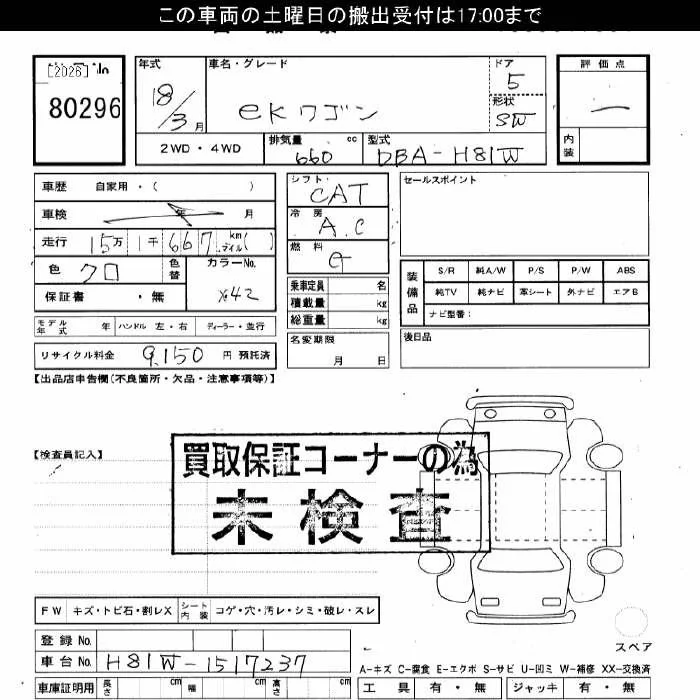 この車両の土曜日の搬出受付は17:00まで
[2026]
80296
年式
18/3月
2WD・4WD
車名・グレード
eKワゴン
ドア
5
形状
SW
排気量 660 cc
型式 DBA-H81W
評価点
—
内装
車歴 自家用・( )
車検 年 月
走行 15万 1千 667 km マイル( )
色 クロ 色替
カラーNo. X42
保証書 ・無
モデル年式 年 ハンドル 左・右 ディーラー・並行
リサイクル料金 9,150 円 預託済
シフト CAT
冷房 A.C
燃料 G
乗車定員 名
積載量 kg
総重量 kg
名変期限
月 日
セールスポイント
装備品
S/R 純A/W P/S P/W ABS
純TV 純ナビ 革シート 外ナビ エアB
ナビ型番:
後日品
【出品店申告欄(不良箇所・欠品・注意事項等)】
【検査員記入】
買取保証コーナーの為
未検査
FW キズ・トビ石・割レX シート内装 コゲ・穴・汚レ・シミ・破レ・スレ
登録 No.
車台 No. H81W-1517237
車庫証明用 長さ cm 幅 cm 高さ cm
スペア
A-キズ C-腐食 E-エクボ S-サビ U-凹ミ W-補修 XX-交換済
工具 有・無 ジャッキ 有・無